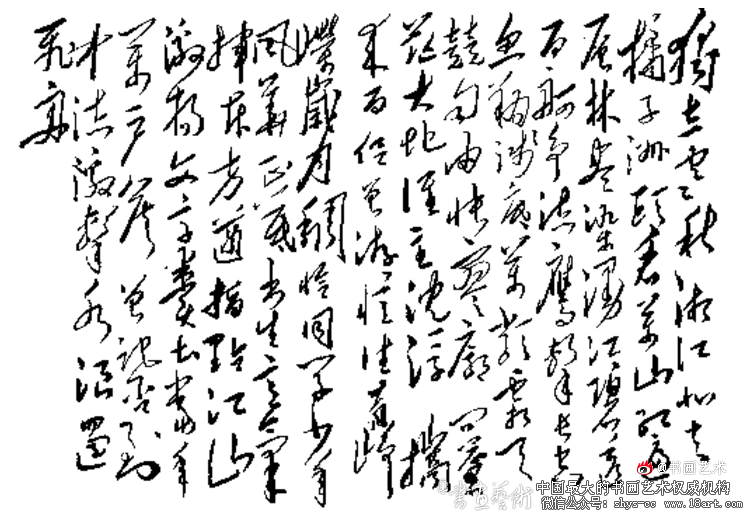 獨立寒秋湘江北去
橘子洲頭看萬山紅遍
層林盡染漫江碧透
百舸爭流鷹擊長空
魚翔淺底萬類霜天
競自由悵寥廓問蒼
茫大地誰主沈浮攜
來百侶曾游憶往昔崢
嶸歲月稠恰同學少年
風華正茂書生意氣
揮斥方遒指點江山
激揚文字糞土當年
萬戶侯曾記否到
中流激擊水浪遏
飛舟
@书画艺术
书画藝術
中国最大的书画艺术权威机构
微信公众号：shys-cc www.18art.cn